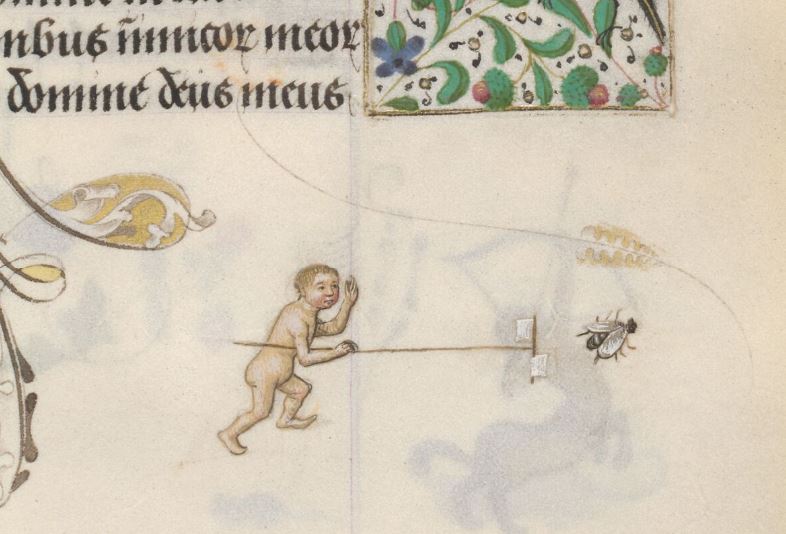 nibus inimicor meor
domine deus meus